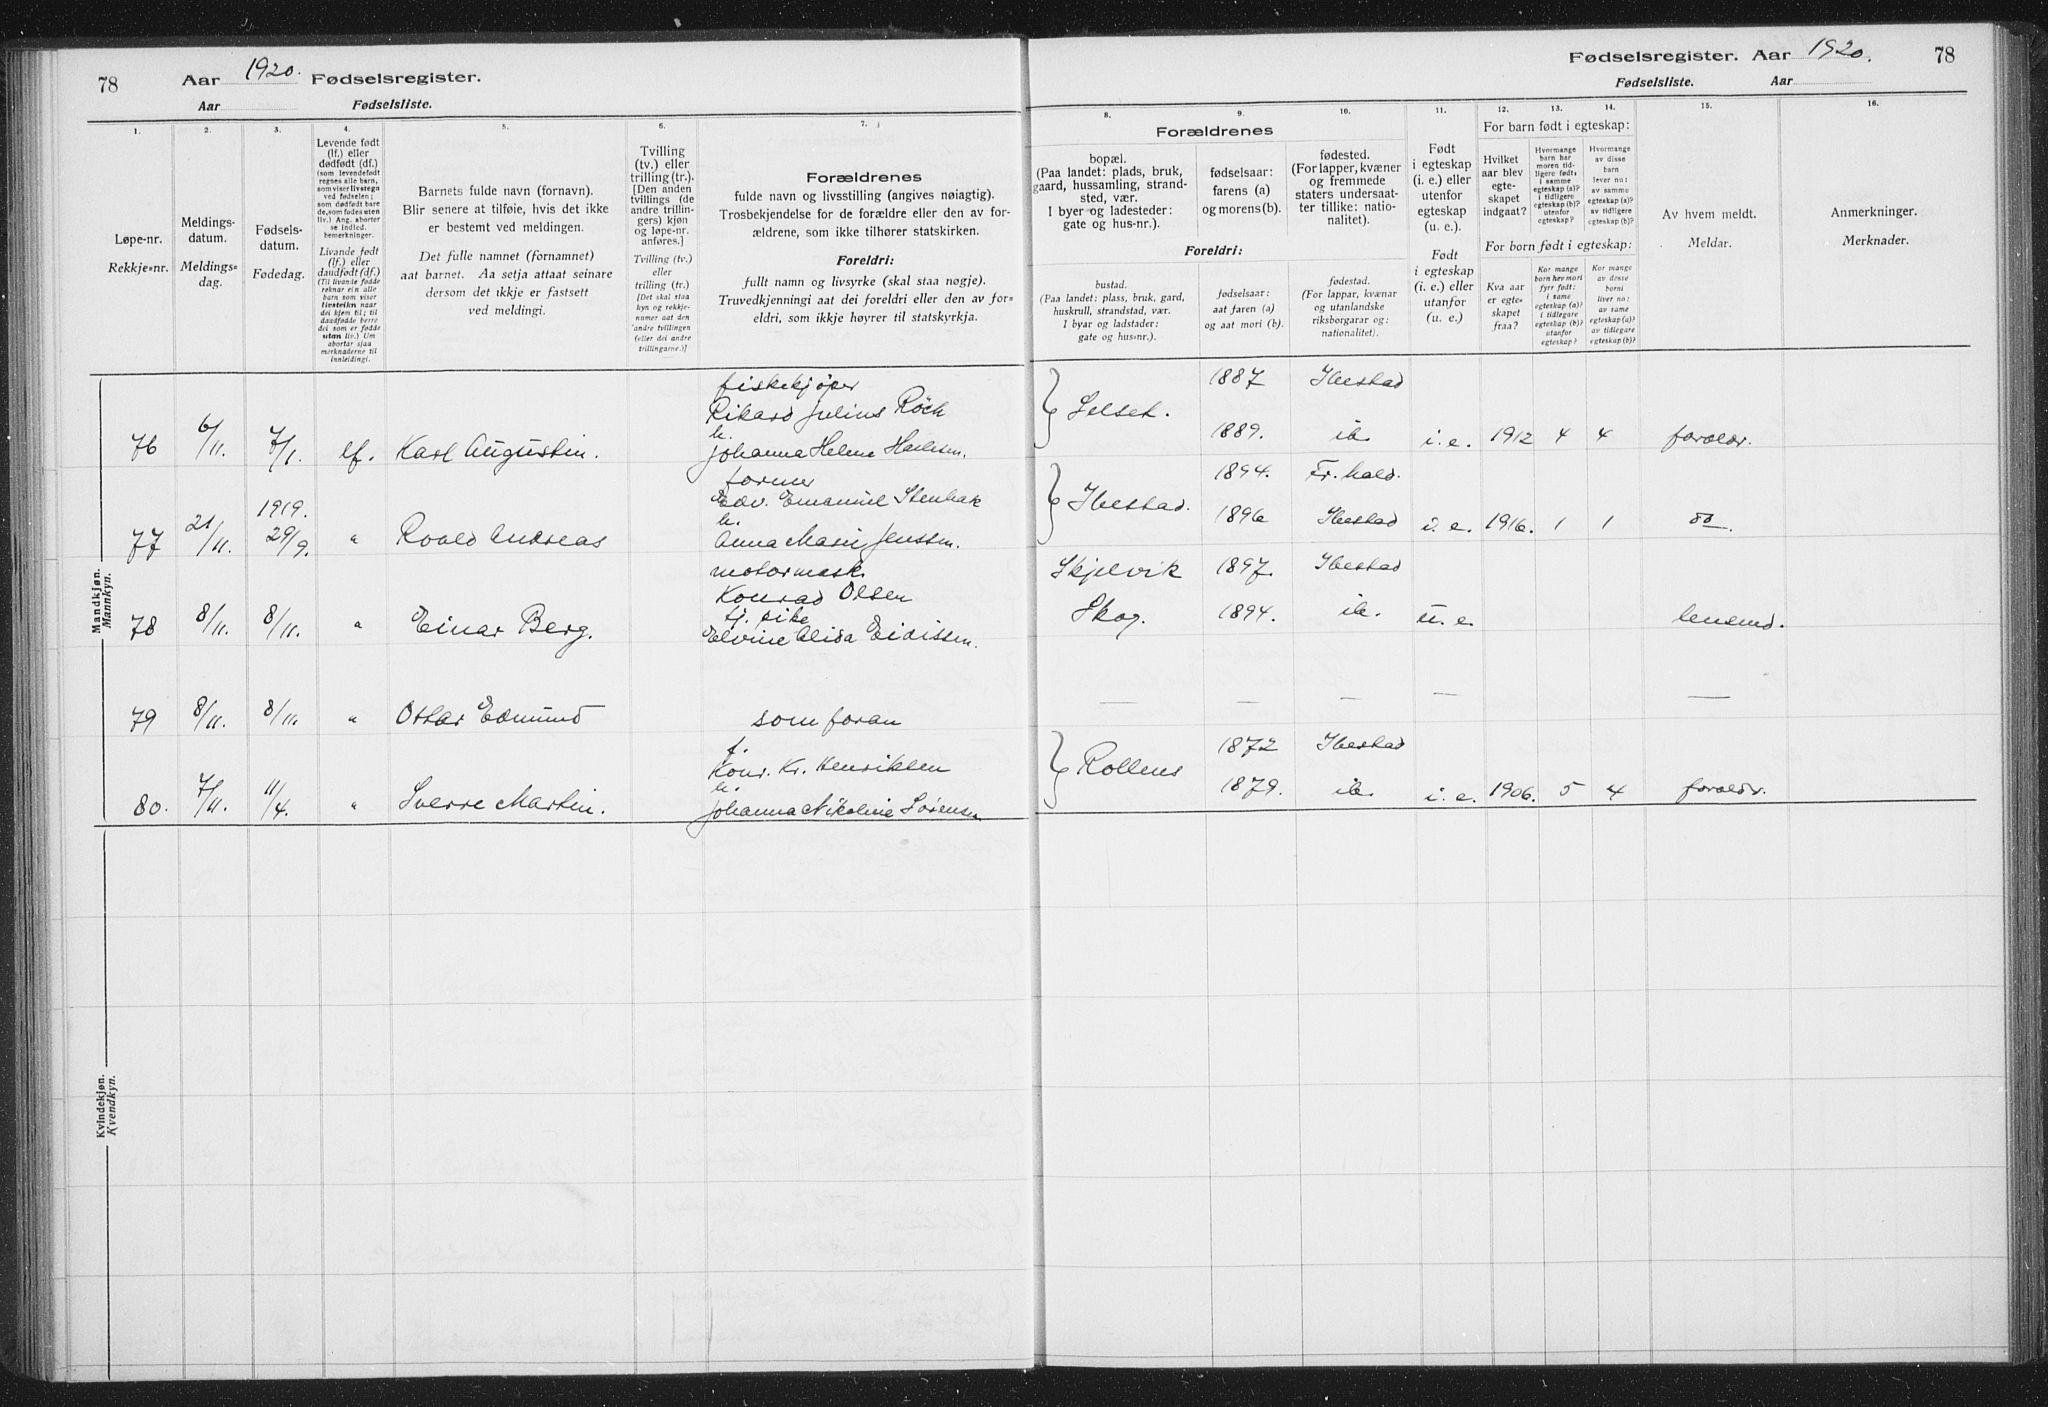 78 Aar 1920. Fødselsregister.
Aar Fødselsliste.
1. 2. 3. 4. 5. 6. 7.
Løpe-nr.
Rekkje=nr.
Meldings-
datum.
Meldings=
dag.
Fødsels-
datum.
Fødedag.
Levende født
(lf.) eller
dødfødt (df.)
(som levendefødt
regnes alle barn,
som viser livstegn
ved fødselen;
som dødfødt bare
de, som fødes uten
liv.) Ang. aborter
se indled.
bemerkninger.
Livande født
(lf.) eller
daudfødt (df.)
(Til livande fødde
reknar ein alle
barn som viser
livsteikn naar
dei kjem til; til
daudfødde berre
dei som er fødde
utan liv.) Um
abortar sjaa
merknaderne til
innleidingi.
Barnets fulde navn (fornavn).
Blir senere at tilføie, hvis det ikke
er bestemt ved meldingen.
Det fulle namnet (fornamnet)
aat barnet. Aa setja attaat seinare
dersom det ikkje er fastsett
ved meldingi.
Tvilling
(tv.) eller
trilling (tr.).
[Den anden
tvillings (de
andre trillin-
gers) kjøn
og løpe-nr.
anføres.]
Tvilling (tv.)
eller
trilling (tr.)
[Det skal staa
kyn og rekkje-
numer aat den
andre tvillingen
(eller dei andre
trillingarne.)]
Forældrenes
fulde navn og livsstilling (angives nøiagtig).
Trosbekjendelse for de forældre eller den av for-
ældrene, som ikke tilhører statskirken.
Foreldri:
fullt namn og livsyrke (skal staa nøgje).
Truvedkjenningi aat dei foreldri eller den av for=
eldri, som ikkje høyrer til statskyrkja.
Mandkjøn.
Mannkyn.
76 6/11. 7/1. lf. Karl Augustin.
fiskekjøper
Rikard Julius Röck
h.
Johanna Helene
77 21/11. 1919. 29/9. " Roald Andreas
former
Edv. Emanuel
h.
Anna Marie Jenssen.
78 8/11. 8/11. " Einar Berg.
motormask.
Konrad Olsen
tj. pike
Elvine Alida Eidissen.
79 8/11. 8/11. " Ottar Edmund som foran
80. 7/11. 11/4. " Sverre Martin.
f.
Konr. Kr. Henriksen
h.
Johanna Nikoline Sørensen
Kvindekjøn.
Kvendkyn.
Fødselsregister. Aar 1920. 78
Fødselsliste. Aar
8. 9. 10. 11. 12. 13. 14. 15. 16.
Forældrenes
bopæl.
(Paa landet: plads, bruk,
gaard, hussamling, strand-
sted, vær.
I byer og ladesteder:
gate og hus-nr.).
fødselsaar:
farens (a)
og morens (b).
fødested.
(For lapper, kvæner
og fremmede
staters undersaat-
ter tillike: natio-
nalitet).
Foreldri:
bustad.
(Paa landet: plass, bruk, gard,
huskrull, strandstad, vær.
I byar og ladstader:
gate og hus=nr.).
fødselsaar:
aat faren (a)
og aat mori (b).
fødestad.
(For lappar, kvænar
og utanlandske
riksborgarar og:
nationalitet).
Født
i egteskap
(i. e.) eller
utenfor
egteskap
(u. e.).
Født
i egteskap
(i. e.) eller
utanfor
egteskap
(u. e.).
For barn født i egteskap:
Hvilket
aar blev
egte-
skapet
indgaat?
Hvormange
barn har
moren tid-
ligere født:
i samme
egteskap (a)?
i tidligere
egteskap (b)?
utenfor
egteskap?
Hvormange
av disse
barn
lever nu:
av samme
egteskap (a)?
av tidligere
egteskap (b)?
For born født i egteskap:
Kva aar
er egte-
skapet
fraa?
Kor mange
born hev mori
fyrr født:
i same
egteskap (a)?
i tidlegare
egteskap (b)?
utanfor
egteskap?
Kor mange
av desse
borni
liver no:
av same
egteskap (a)?
av tidlegare
egteskap (b)?
Av hvem meldt.
Meldar.
Anmerkninger.
Merknader.
Selset. 1887 Ibestad
1889. ib. i. e. 1912 4 4 foreldr.
Ibestad. 1894. Fr.hald.
1896 Ibestad i. e. 1916. 1 1 do
Skjelvik 1897. Ibestad
Skog. 1894. ib. u. e. lensmd.
— — — — —
Rollnes 1872 Ibestad
1879. ib. i. e. 1906. 5 4 foreldr.